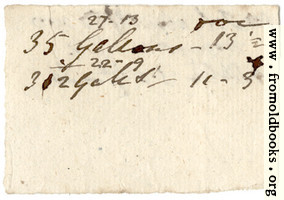 27-13
35 Gallons - 13
22-9
32 Galls - 11 - 3
www.fromoldbooks.org